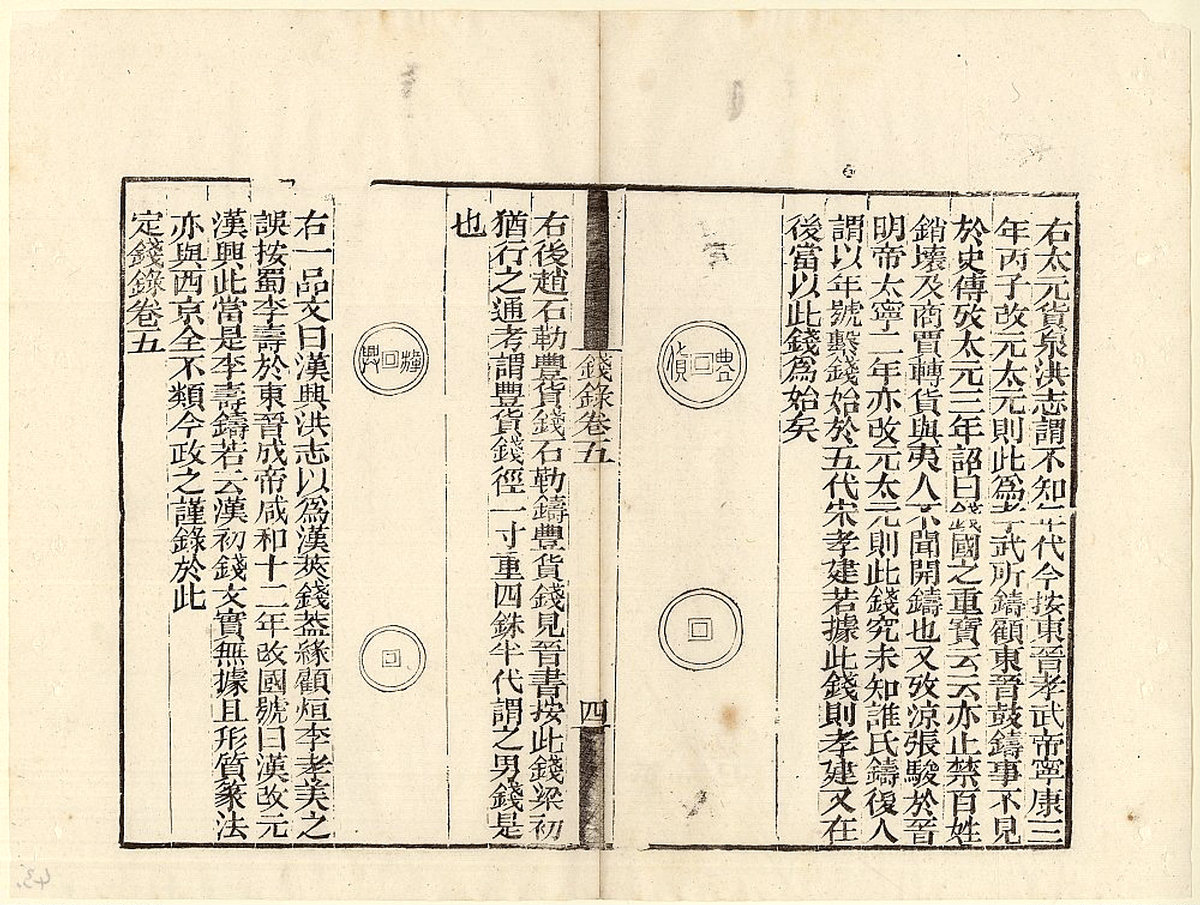 右太元貨泉洪志謂不知年代今按東晉孝武帝寧康三
年丙子改元太元則此為孝武所鑄顧東晉鼓鑄事不見
於史傳攷太元三年詔曰錢國之重寶云云亦止禁百姓
銷壞及商賈轉貨與夷人不聞開鑄也又攷涼張駿於晉
明帝太寧二年亦改元太元則此錢究未知誰氏鑄後人
謂以年號繫錢始於五代宋孝建若據此錢則孝建又在
後當以此錢為始矣
豊貨
錢錄卷五
四
右後趙石勒豐貨錢石勒鑄豐貨錢見晉書按此錢梁初
猶行之通考謂豐貨錢徑一寸重四銖半代謂之男錢是
也
漢興
右一品文曰漢興洪志以為漢莢錢葢緣顧烜李孝美之
誤按蜀李壽於東晉成帝咸和十二年改國號曰漢改元
漢興此當是李壽鑄若云漢初錢文實無據且形質篆法
亦與西京全不類今政之謹錄於此
定錢錄卷五
43.